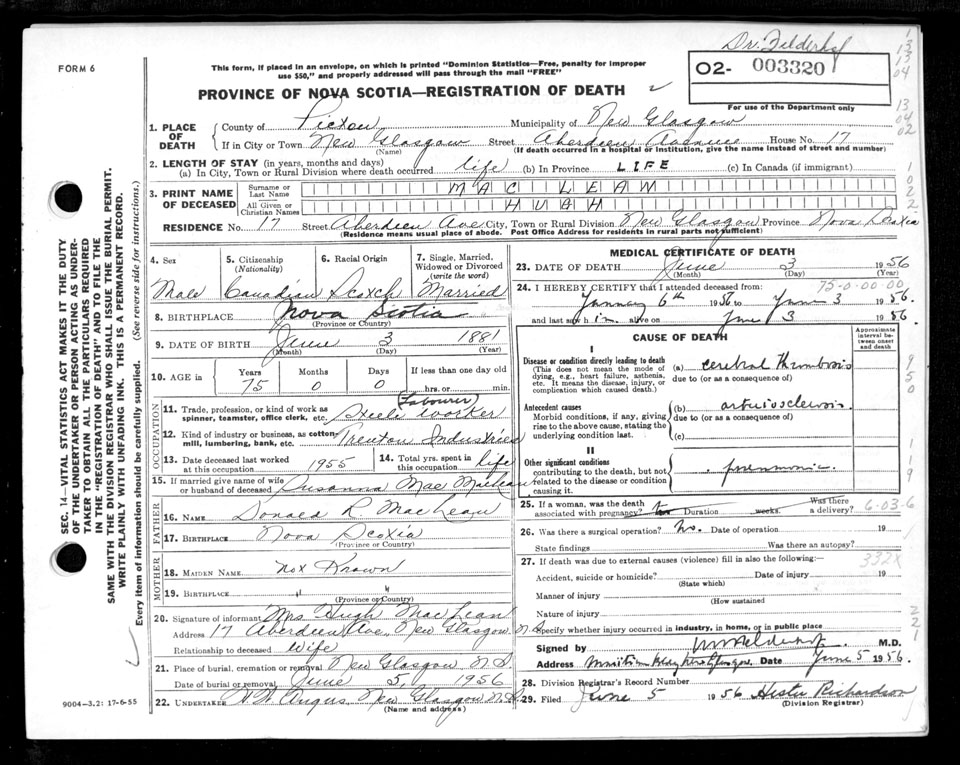 Dr. Felderhof
FORM 6
This form, if placed in an envelope, on which is printed "Dominion Statistics—Free, penalty for improper
use $50," and properly addressed will pass through the mail "FREE"
02- 003320
PROVINCE OF NOVA SCOTIA—REGISTRATION OF DEATH
For use of the Department only
1. PLACE OF DEATH County of Pictou Municipality of New Glasgow
If in City or Town New Glasgow (Name) Street Aberdeen Avenue House No. 17
(If death occurred in a hospital or institution, give the name instead of street and number)
2. LENGTH OF STAY (in years, months and days)
(a) In City, Town or Rural Division where death occurred life (b) In Province LIFE (c) In Canada (if immigrant)
3. PRINT NAME OF DECEASED Surname or Last Name MAC LEAN
All Given or Christian Names HUGH
RESIDENCE No. 17 Street Aberdeen Ave City, Town or Rural Division New Glasgow Province Nova Scotia
(Residence means usual place of abode. Post Office Address for residents in rural parts not sufficient)
4. Sex Male
5. Citizenship (Nationality) Canadian
6. Racial Origin Scotch
7. Single, Married, Widowed or Divorced (write the word) Married
8. BIRTHPLACE Nova Scotia
(Province or Country)
9. DATE OF BIRTH June 3 1881
(Month) (Day) (Year)
10. AGE in Years 75 Months 0 Days 0 If less than one day old hrs. or min.
OCCUPATION
11. Trade, profession, or kind of work as spinner, teamster, office clerk, etc. (Labourer) Steel worker
12. Kind of industry or business, as cotton mill, lumbering, bank, etc. Trenton Industries
13. Date deceased last worked at this occupation 1955
14. Total yrs. spent in this occupation life
15. If married give name of wife or husband of deceased Susanna Mae MacLean
FATHER
16. NAME Donald R MacLean
17. BIRTHPLACE Nova Scotia
(Province or Country)
MOTHER
18. MAIDEN NAME Not Known
19. BIRTHPLACE " "
(Province or Country)
20. Signature of informant Mrs Hugh MacLean
Address 17 Aberdeen Ave, New Glasgow N.S.
Relationship to deceased Wife
21. Place of burial, cremation or removal New Glasgow N.S.
Date of burial or removal June 5, 1956
22. UNDERTAKER Angus New Glasgow N.S.
(Name and address)
9004-3.2: 17-6-55
MEDICAL CERTIFICATE OF DEATH
23. DATE OF DEATH June 3 1956
(Month) (Day) (Year)
75-0-00-00
24. I HEREBY CERTIFY that I attended deceased from:
January 6th 1956 to June 3 1956.
and last saw him alive on June 3 1956.
CAUSE OF DEATH
Approximate interval between onset and death
I
Disease or condition directly leading to death
(This does not mean the mode of dying, e.g., heart failure, asthenia, etc. It means the disease, injury, or complication which caused death.)
(a) cerebral thrombosis
due to (or as a consequence of)
Antecedent causes
Morbid conditions, if any, giving rise to the above cause, stating the underlying condition last.
(b) arteriosclerosis.
due to (or as a consequence of)
(c)
II
Other significant conditions
contributing to the death, but not related to the disease or condition causing it.
pneumonia.
25. If a woman, was the death associated with pregnancy? Duration weeks. Was there a delivery?
6-03-6
26. Was there a surgical operation? No. Date of operation 19
State findings Was there an autopsy?
27. If death was due to external causes (violence) fill in also the following:—
332X
Accident, suicide or homicide? Date of injury 19
(State which)
Manner of injury
(How sustained)
Nature of injury
Specify whether injury occurred in industry, in home, or in public place
Signed by M.D.
Address New Glasgow. Date June 5 1956.
28. Division Registrar's Record Number
29. Filed June 5 1956 Hester Richardson
(Division Registrar)
SEC. 14—VITAL STATISTICS ACT MAKES IT THE DUTY
OF THE UNDERTAKER OR PERSON ACTING AS UNDER-
TAKER TO OBTAIN ALL THE PARTICULARS REQUIRED
IN THE "REGISTRATION OF DEATH" AND TO FILE THE
SAME WITH THE DIVISION REGISTRAR WHO SHALL ISSUE THE BURIAL PERMIT.
WRITE PLAINLY WITH UNFADING INK. THIS IS A PERMANENT RECORD.
Every item of information should be carefully supplied. (See reverse side for instructions.)